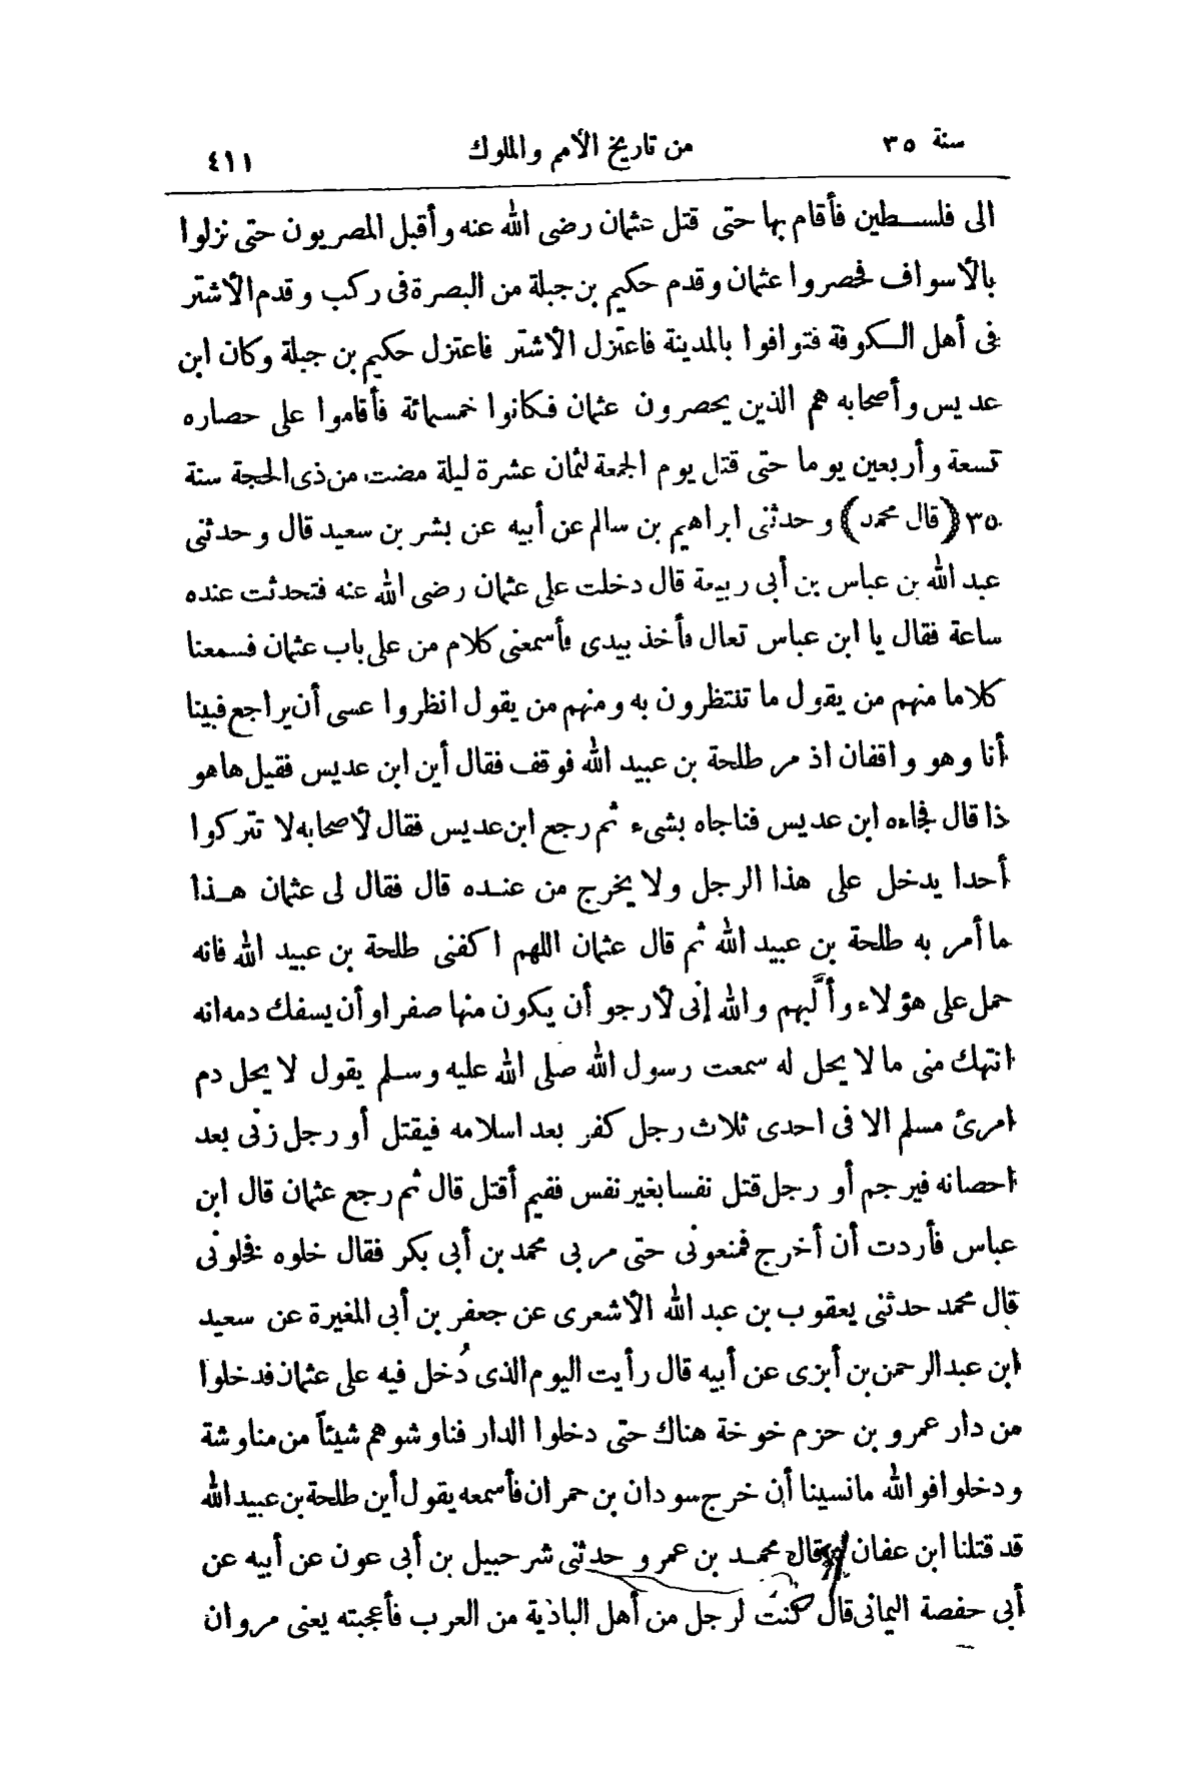 سنة ٣٥ من تاريخ الأمم والملوك ٤١١
الى فلسطين فأقام بها حتى قتل عثمان رضى الله عنه وأقبل المصريون حتى نزلوا
بالأسواف فحصروا عثمان وقدم حكيم بن جبلة من البصرة فى ركب وقدم الأشتر
فى أهل الكوفة فتوافوا بالمدينة فاعتزل الأشتر فاعتزل حكيم بن جبلة وكان ابن
عديس وأصحابه هم الذين يحصرون عثمان فكانوا خمسمائة فأقاموا على حصاره
تسعة وأربعين يوما حتى قتل يوم الجمعة لثمان عشرة ليلة مضت من ذى الحجة سنة
٣٥ (قال محمد) وحدثنى ابراهيم بن سالم عن أبيه عن بشر بن سعيد قال وحدثنى
عبد الله بن عباس بن أبى ربيعة قال دخلت على عثمان رضى الله عنه فتحدثت عنده
ساعة فقال يا ابن عباس تعال فأخذ بيدى فأسمعنى كلام من على باب عثمان فسمعنا
كلاما منهم من يقول ما تنتظرون به ومنهم من يقول انظروا عسى أن يراجع فبينا
أنا وهو واقفان اذ مر طلحة بن عبيد الله فوقف فقال أين ابن عديس فقيل ها هو
ذا قال فجاءه ابن عديس فناجاه بشىء ثم رجع ابن عديس فقال لأصحابه لا تتركوا
أحدا يدخل على هذا الرجل ولا يخرج من عنده قال فقال لى عثمان هذا
ما أمر به طلحة بن عبيد الله ثم قال عثمان اللهم اكفنى طلحة بن عبيد الله فانه
حمل على هؤلاء وألَّبهم والله إنى لأرجو أن يكون منها صفرا وأن يسفك دمه انه
انتهك منى ما لا يحل له سمعت رسول الله صلى الله عليه وسلم يقول لا يحل دم
امرئ مسلم الا فى احدى ثلاث رجل كفر بعد اسلامه فيقتل أو رجل زنى بعد
احصانه فيرجم أو رجل قتل نفسا بغير نفس ففيم أقتل قال ثم رجع عثمان قال ابن
عباس فأردت أن أخرج فمنعونى حتى مر بى محمد بن أبى بكر فقال خلوه فخلونى
قال محمد حدثنى يعقوب بن عبد الله الأشعرى عن جعفر بن أبى المغيرة عن سعيد
ابن عبد الرحمن بن أبزى عن أبيه قال رأيت اليوم الذى دُخل فيه على عثمان فدخلوا
من دار عمرو بن حزم خوخة هناك حتى دخلوا الدار فناوشوهم شيئاً من مناوشة
ودخلوا فوالله ما نسينا أن خرج سودان بن حمران فأسمعه يقول أين طلحة بن عبيد الله
قد قتلنا ابن عفان قال محمد بن عمرو حدثنى شرحبيل بن أبى عون عن أبيه عن
أبى حفصة اليمانى قال كنت لرجل من أهل البادية من العرب فأعجبته يعنى مروان